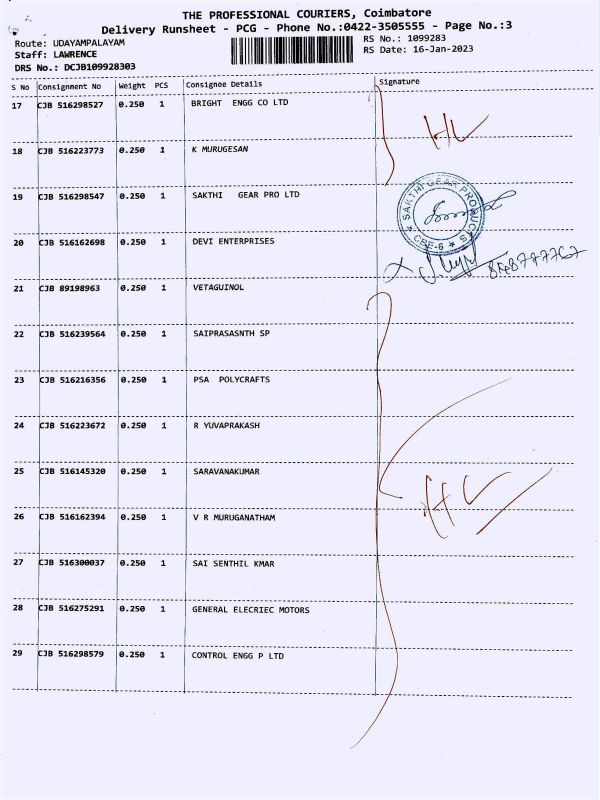 THE PROFESSIONAL COURIERS, Coimbatore
Delivery Runsheet - PCG - Phone No.:0422-3505555 - Page No.:3
Route: UDAYAMPALAYAM
RS No.: 1099283
Staff: LAWRENCE
RS Date: 16-Jan-2023
DRS No.: DCJB109928303
S No Consignment No Weight PCS Consignee Details Signature
17 CJB 516298527 0.250 1 BRIGHT ENGG CO LTD
18 CJB 516223773 0.250 1 K MURUGESAN
19 CJB 516298547 0.250 1 SAKTHI GEAR PRO LTD
SAKTHI GEAR PRODUCTS
CBE-6
20 CJB 516162698 0.250 1 DEVI ENTERPRISES
21 CJB 89198963 0.250 1 VETAGUINOL
22 CJB 516239564 0.250 1 SAIPRASASNTH SP
23 CJB 516216356 0.250 1 PSA POLYCRAFTS
24 CJB 516223672 0.250 1 R YUVAPRAKASH
25 CJB 516145320 0.250 1 SARAVANAKUMAR
26 CJB 516162394 0.250 1 V R MURUGANATHAM
27 CJB 516300037 0.250 1 SAI SENTHIL KMAR
28 CJB 516275291 0.250 1 GENERAL ELECRIEC MOTORS
29 CJB 516298579 0.250 1 CONTROL ENGG P LTD